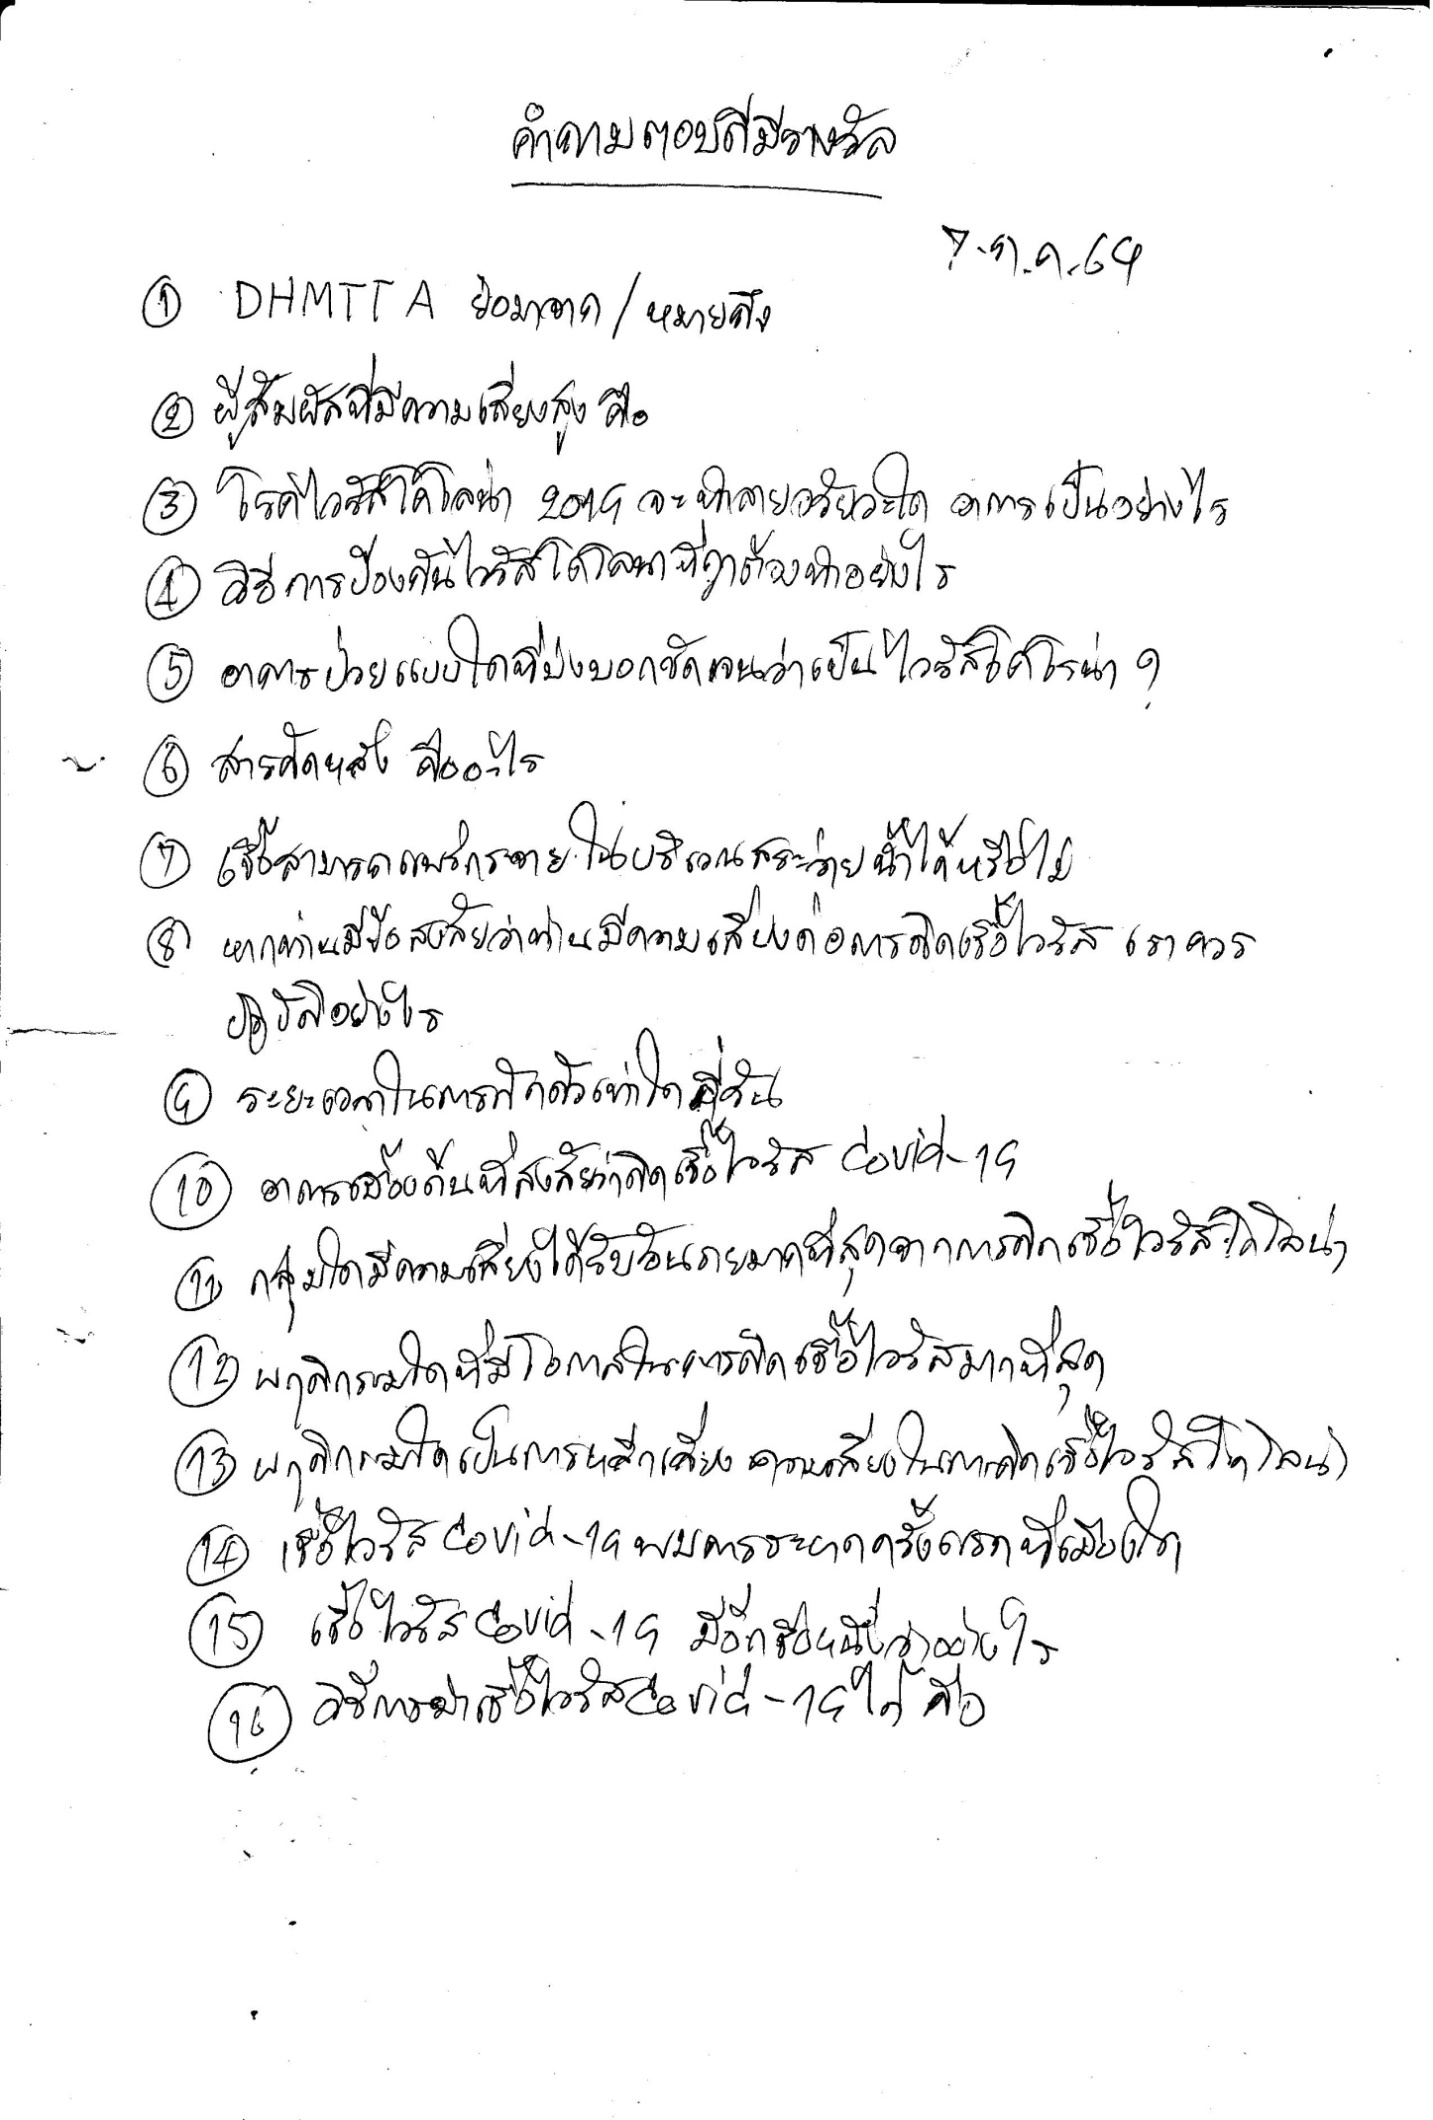 คำถามตอบดีมีรางวัล
7.ต.ค.64
① DHMTTA ย่อมาจาก / หมายถึง
② ผู้สัมผัสที่มีความเสี่ยงสูง คือ
③ โรคไวรัสโคโลน่า 2019 จะทำลายอวัยวะใด อาการเป็นอย่างไร
④ วิธีการป้องกันไวรัสโคโลนาที่ถูกต้องทำอย่างไร
⑤ อาการป่วยแบบใดที่บ่งบอกชัดเจนว่าเป็นไวรัสโคโรน่า ?
⑥ สารคัดหลั่ง คืออะไร
⑦ เชื้อสามารถแพร่กระจายในบริเวณสระว่ายน้ำได้หรือไม่
⑧ หากท่านมีข้อสงสัยว่าท่านมีความเสี่ยงต่อการติดเชื้อไวรัส เราควร
ปฏิบัติอย่างไร
⑨ ระยะเวลาในการฟักตัวเท่าใด กี่วัน
⑩ อาการเบื้องต้นที่สงสัยว่าติดเชื้อไวรัส Covid-19
⑪ กลุ่มใดมีความเสี่ยงได้รับอันตรายมากที่สุดจากการติดเชื้อไวรัสโคโลน่า
⑫ พฤติกรรมใดที่มีโอกาสในการติดเชื้อไวรัสมากที่สุด
⑬ พฤติกรรมใดเป็นการหลีกเลี่ยง ความเสี่ยงในการติดเชื้อไวรัสโคโลน่า
⑭ เชื้อไวรัส Covid-19 พบการระบาดครั้งแรกที่เมืองใด
⑮ เชื้อไวรัส Covid-19 มีอีกชื่อหนึ่งว่าอย่างไร
⑯ วิธีการฆ่าเชื้อไวรัส Covid-19 ได้ คือ